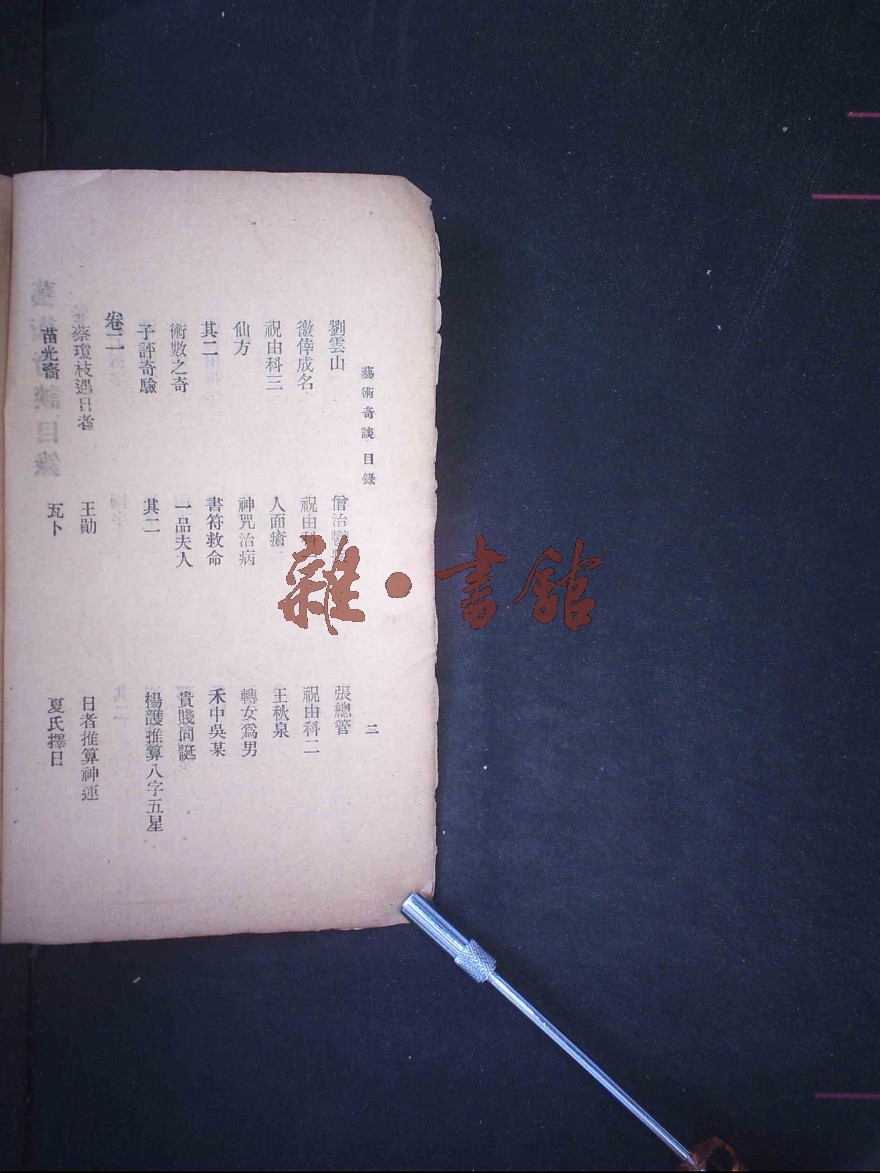 藝術奇談 目錄
二
劉雲山 僧治 張總管
徼倖成名 祝由科 祝由科二
祝由科三 人面瘡 王秋泉
仙方 神咒治病 轉女爲男
其二 書符救命 禾中吳某
術數之奇 一品夫人 貴賤同誕
子評奇驗 其二 楊護推算八字五星
卷二
蔡瓊枝遇日者 王勛 日者推算神運
苗光裔 瓦卜 夏氏擇日
雜·書館